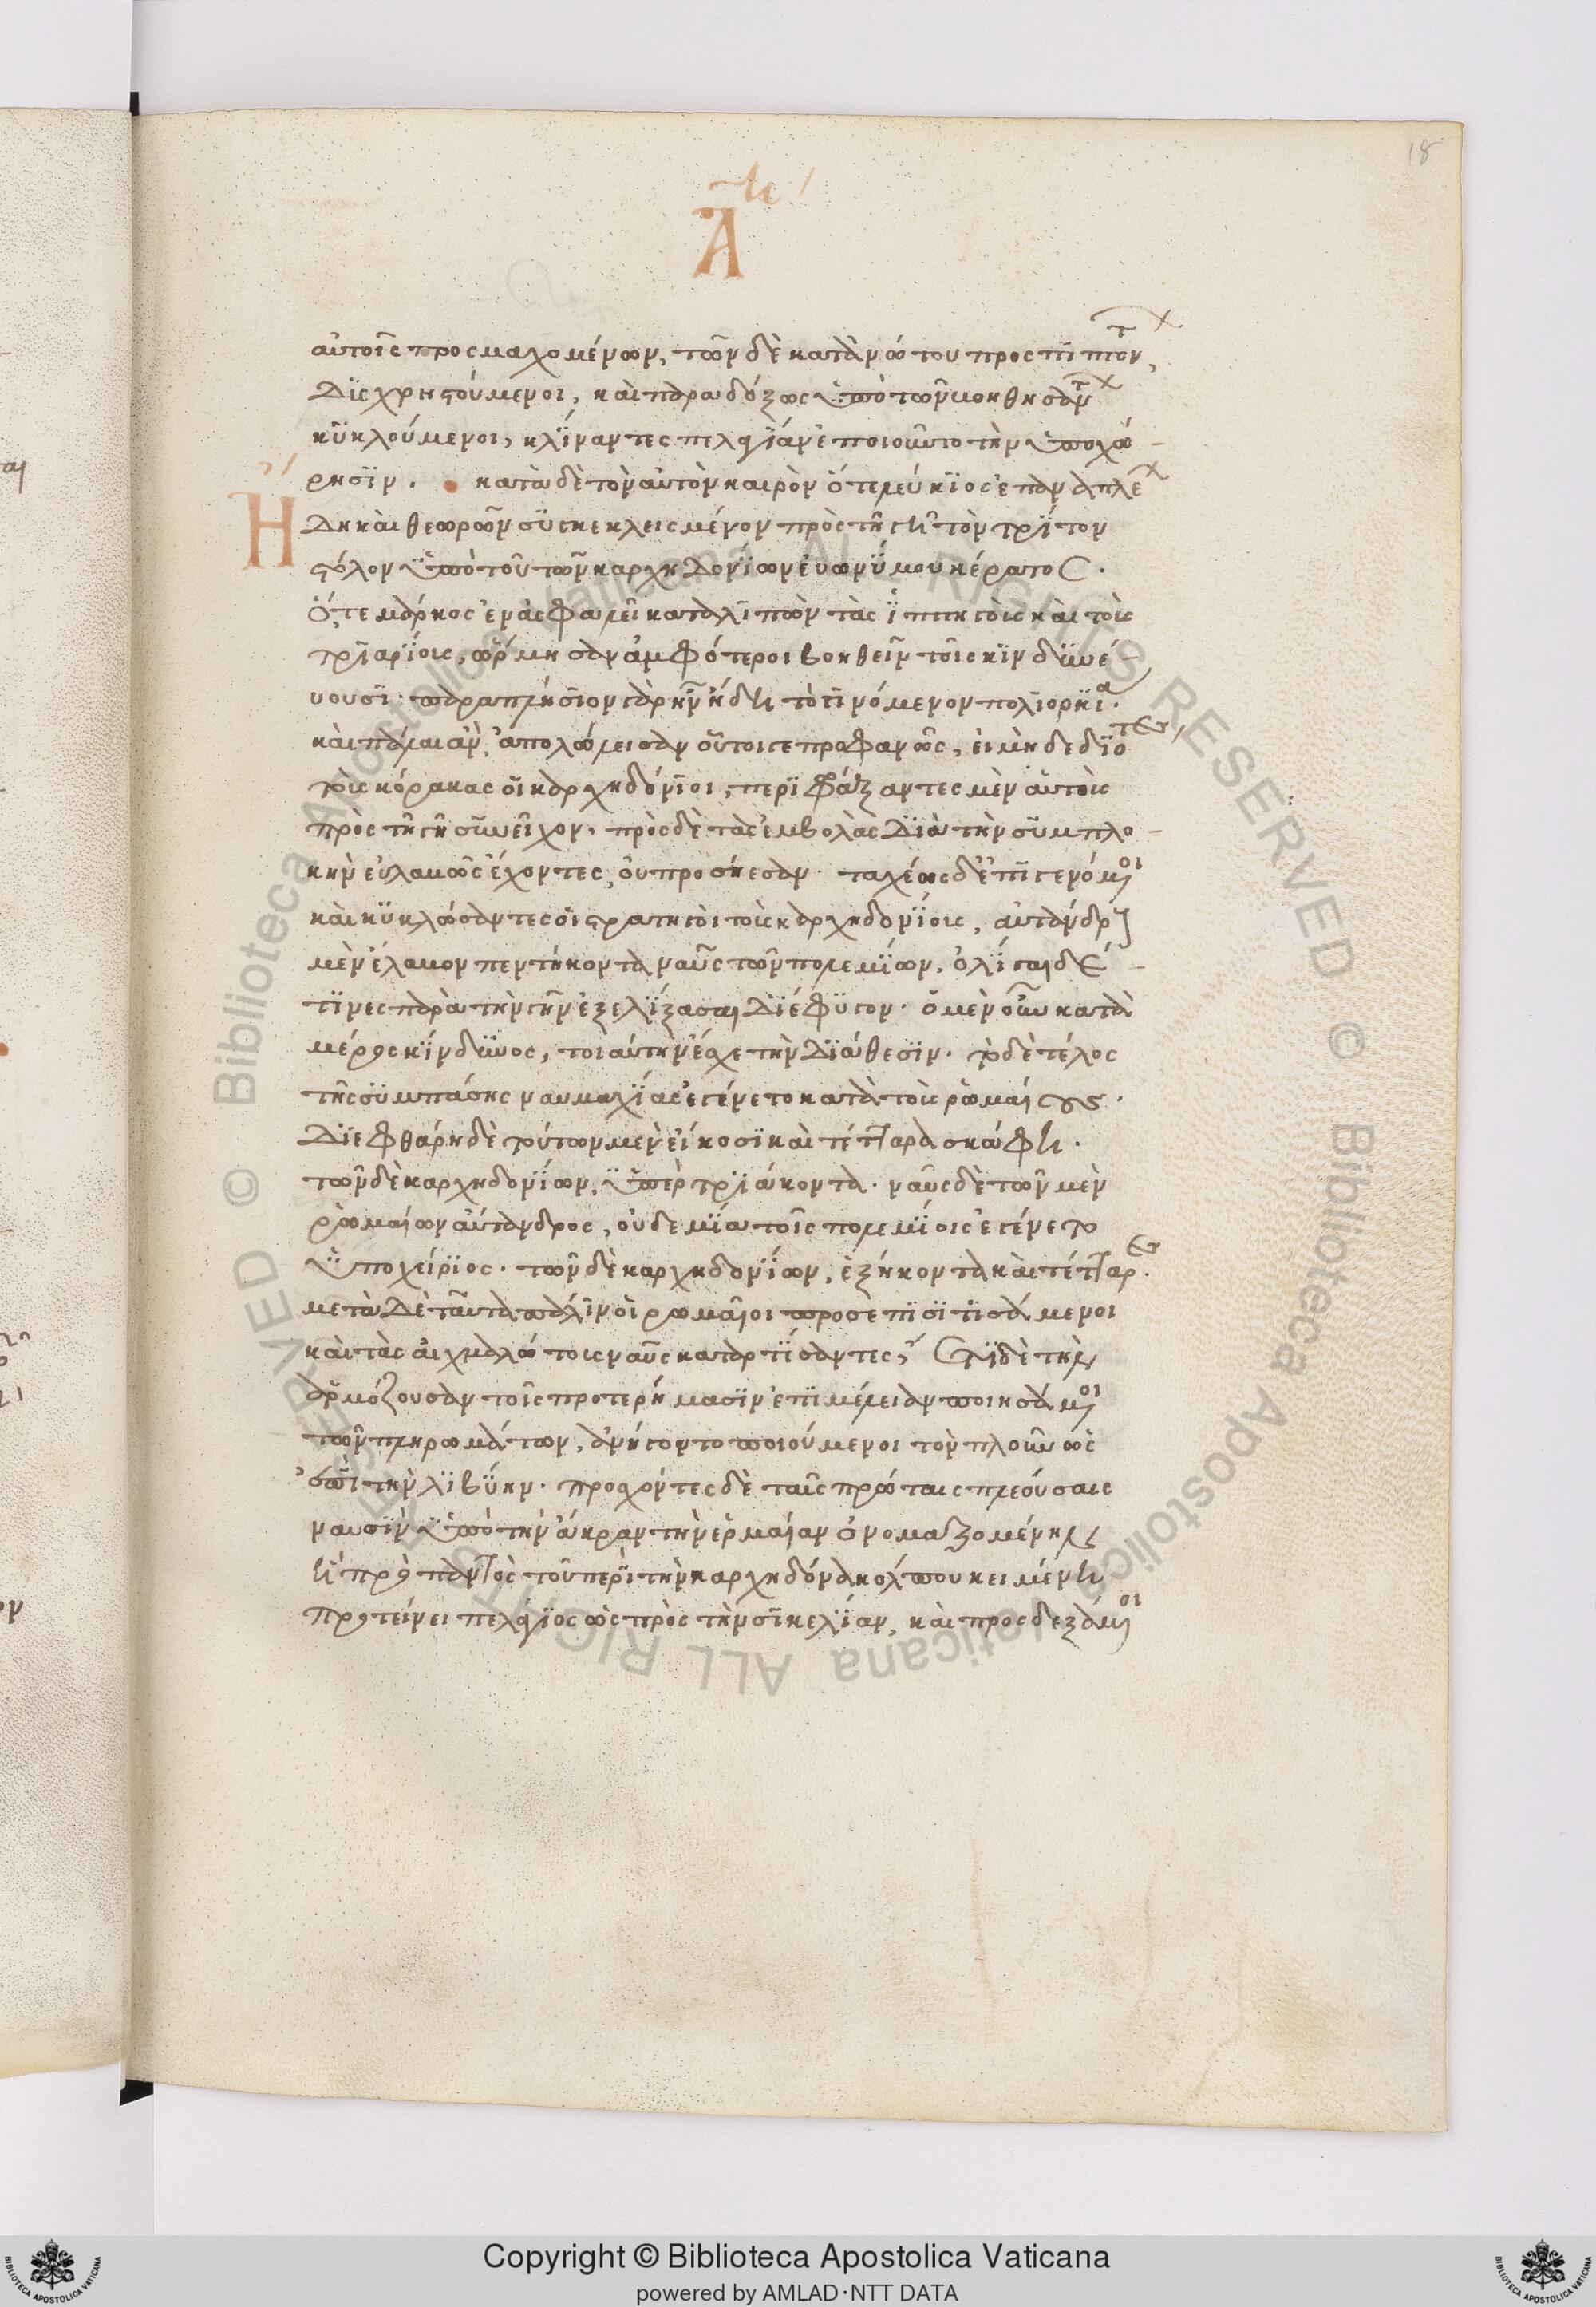 18
Αη
αὐτοῖς προσμαχομένων, τῶν δὲ κατὰ νώτου προσπιπτόντων,
δυσχρηστούμενοι, καὶ παραδόξως ὑπὸ τῶν βοηθησάντων
κυκλούμενοι, κλίναντες πελάγιαν ἐποιοῦντο τὴν ὑποχώ-
ρησιν. κατὰ δὲ τὸν αὐτὸν καιρὸν ὅ τε λεύκιος ἐπαναπλέων
Η
δη καὶ θεωρῶν συγκεκλεισμένον πρὸς τῇ γῇ τὸν τρίτον
στόλον ὑπὸ τοῦ τῶν καρχηδονίων εὐωνύμου κέρατος.
ὅ τε μάρκος ἐν ἀσφαλεῖ καταλιπὼν τὰς ἱππηγοὺς καὶ τοὺς
τριαρίους, ὥρμησαν ἀμφότεροι βοηθεῖν τοῖς κινδυνε-
ύουσι. παραπλήσιον γὰρ ἦν ἤδη τὸ γινόμενον πολιορκία.
καὶ πάλαι ἂν ἀπολώλεισαν οὗτοί γε προφανῶς, εἰ μὴ δεδιότες
τοὺς κόρακας οἱ καρχηδόνιοι, περιφράξαντες μὲν αὐτοὺς
πρὸς τῇ γῇ συνεῖχον, πρὸς δὲ τὰς ἐμβολὰς διὰ τὴν συμπλο-
κὴν εὐλαβῶς ἔχοντες, οὐ προσῄεσαν. ταχέως δ' ἐπιγενόμενοι
καὶ κυκλώσαντες οἱ στρατηγοὶ τοὺς καρχηδονίους, αὐτάνδρους
μὲν ἔλαβον πεντήκοντα ναῦς τῶν πολεμίων, ὀλίγαι δέ
τινες παρὰ τὴν γῆν ἐξελίξασαι διέφυγον. ὁ μὲν οὖν κατὰ
μέρος κίνδυνος, τοιαύτην ἔσχε τὴν διάθεσιν. τὸ δὲ τέλος
τῆς συμπάσης ναυμαχίας ἐγένετο κατὰ τοὺς ῥωμαίους.
διεφθάρη δὲ τούτων μὲν εἴκοσι καὶ τέτταρα σκάφη.
τῶν δὲ καρχηδονίων, ὑπὲρ τριάκοντα. ναῦς δὲ τῶν μὲν
ῥωμαίων αὔτανδρος, οὐδεμία τοῖς πολεμίοις ἐγένετο
ὑποχείριος. τῶν δὲ καρχηδονίων, ἑξήκοντα καὶ τέτταρες.
μετὰ δὲ ταῦτα πάλιν οἱ ῥωμαῖοι προσεπισιτισάμενοι
καὶ τὰς αἰχμαλώτους ναῦς καταρτίσαντες, ἔτι δὲ τὴν
ἁρμόζουσαν τοῖς προτερήμασιν ἐπιμέλειαν ποιησάμενοι
τῶν πληρωμάτων, ἀνήγοντο ποιούμενοι τὸν πλοῦν ὡς
ἐπὶ τὴν λιβύην. προσχόντες δὲ ταῖς πρώταις πλεούσαις
ναυσὶν ὑπὸ τὴν ἄκραν τὴν ἑρμαίαν ὀνομαζομένην
ἣ πρὸ παντὸς τοῦ περὶ τὴν καρχηδόνα κόλπου κειμένη
προτείνει πελάγιος ὡς πρὸς τὴν σικελίαν, καὶ προσδεξάμενοι
Copyright © Biblioteca Apostolica Vaticana
powered by AMLAD·NTT DATA